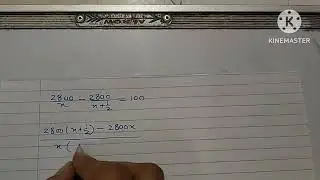 KINEMASTER
2800/x - 2800/(x+1/2) = 100
2800(x+1/2) - 2800x
x (